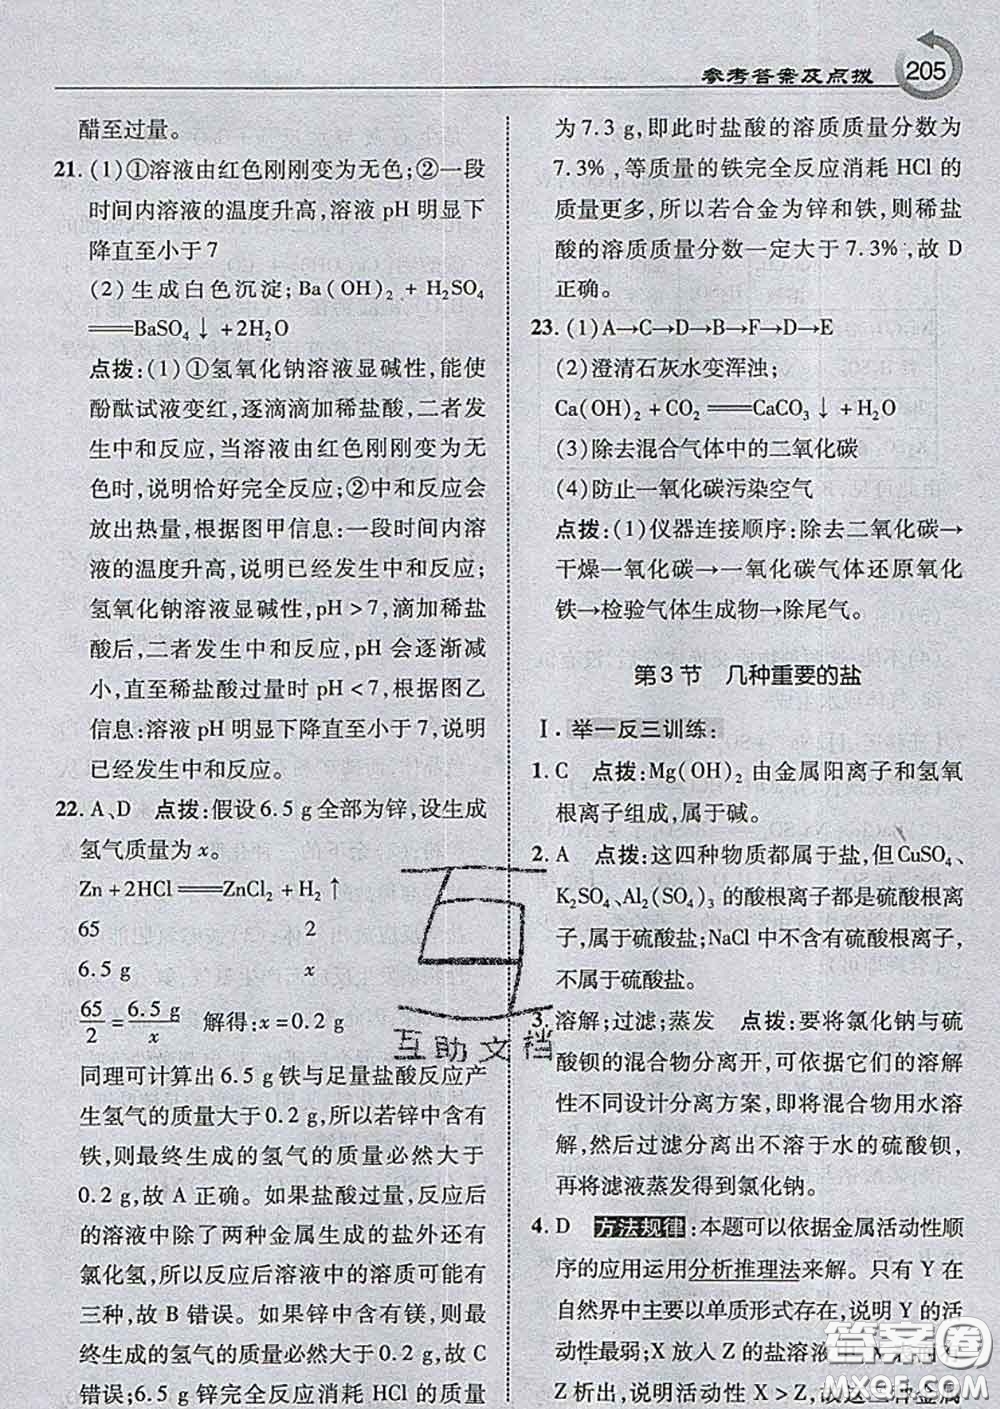 参考答案及点拨
205
醋至过量。
21. (1)①溶液由红色刚刚变为无色;②一段
时间内溶液的温度升高,溶液 pH 明显下
降直至小于 7
(2)生成白色沉淀;Ba(OH)₂ + H₂SO₄
══BaSO₄↓+2H₂O
点拨:(1)①氢氧化钠溶液显碱性,能使
酚酞试液变红,逐滴滴加稀盐酸,二者发
生中和反应,当溶液由红色刚刚变为无
色时,说明恰好完全反应;②中和反应会
放出热量,根据图甲信息:一段时间内溶
液的温度升高,说明已经发生中和反应;
氢氧化钠溶液显碱性,pH>7,滴加稀盐
酸后,二者发生中和反应,pH 会逐渐减
小,直至稀盐酸过量时,pH<7,根据图乙
信息:溶液 pH 明显下降直至小于 7,说明
已经发生中和反应。
22. A、D 点拨:假设 6.5 g 全部为锌,设生成
氢气质量为 x。
Zn+2HCl══ZnCl₂+H₂↑
65 2
6.5 g x
65/2=6.5 g/x 解得:x=0.2 g
同理可计算出 6.5 g 铁与足量盐酸反应产
生氢气的质量大于 0.2 g,所以若锌中含有
铁,则最终生成的氢气的质量必然大于
0.2 g,故 A 正确。如果盐酸过量,反应后
的溶液中除了两种金属生成的盐外还有
氯化氢,所以反应后溶液中的溶质可能有
三种,故 B 错误。如果锌中含有镁,则最
终生成的氢气的质量必然大于 0.2 g,故 C
错误;6.5 g 锌完全反应消耗 HCl 的质量
为 7.3 g,即此时盐酸的溶质质量分数为
7.3%,等质量的铁完全反应消耗 HCl 的
质量更多,所以若合金为锌和铁,则稀盐
酸的溶质质量分数一定大于 7.3%,故 D
正确。
23. (1)A→C→D→B→F→D→E
(2)澄清石灰水变浑浊;
Ca(OH)₂+CO₂══CaCO₃↓+H₂O
(3)除去混合气体中的二氧化碳
(4)防止一氧化碳污染空气
点拨:(1)仪器连接顺序:除去二氧化碳→
干燥一氧化碳→一氧化碳气体还原氧化
铁→检验气体生成物→除尾气。
第 3 节 几种重要的盐
Ⅰ. 举一反三训练:
1. C 点拨:Mg(OH)₂ 由金属阳离子和氢氧
根离子组成,属于碱。
2. A 点拨:这四种物质都属于盐,但CuSO₄、
K₂SO₄、Al₂(SO₄)₃ 的酸根离子都是硫酸根离
子,属于硫酸盐;NaCl 中不含有硫酸根离子,
不属于硫酸盐。
3. 溶解;过滤;蒸发 点拨:要将氯化钠与硫
酸钡的混合物分离开,可依据它们的溶解
性不同设计分离方案,即将混合物用水溶
解,然后过滤分离出不溶于水的硫酸钡,
再将滤液蒸发得到氯化钠。
4. D 方法规律:本题可以依据金属活动性顺
序的应用运用分析推理法来解。只有 Y 在
自然界中主要以单质形式存在,说明 Y 的活
动性最弱;X 放入 Z 的盐溶液中
Z 析出,说明活动性 X>Z,故这三种金属
互助文档
答案圈
MXQE.COM